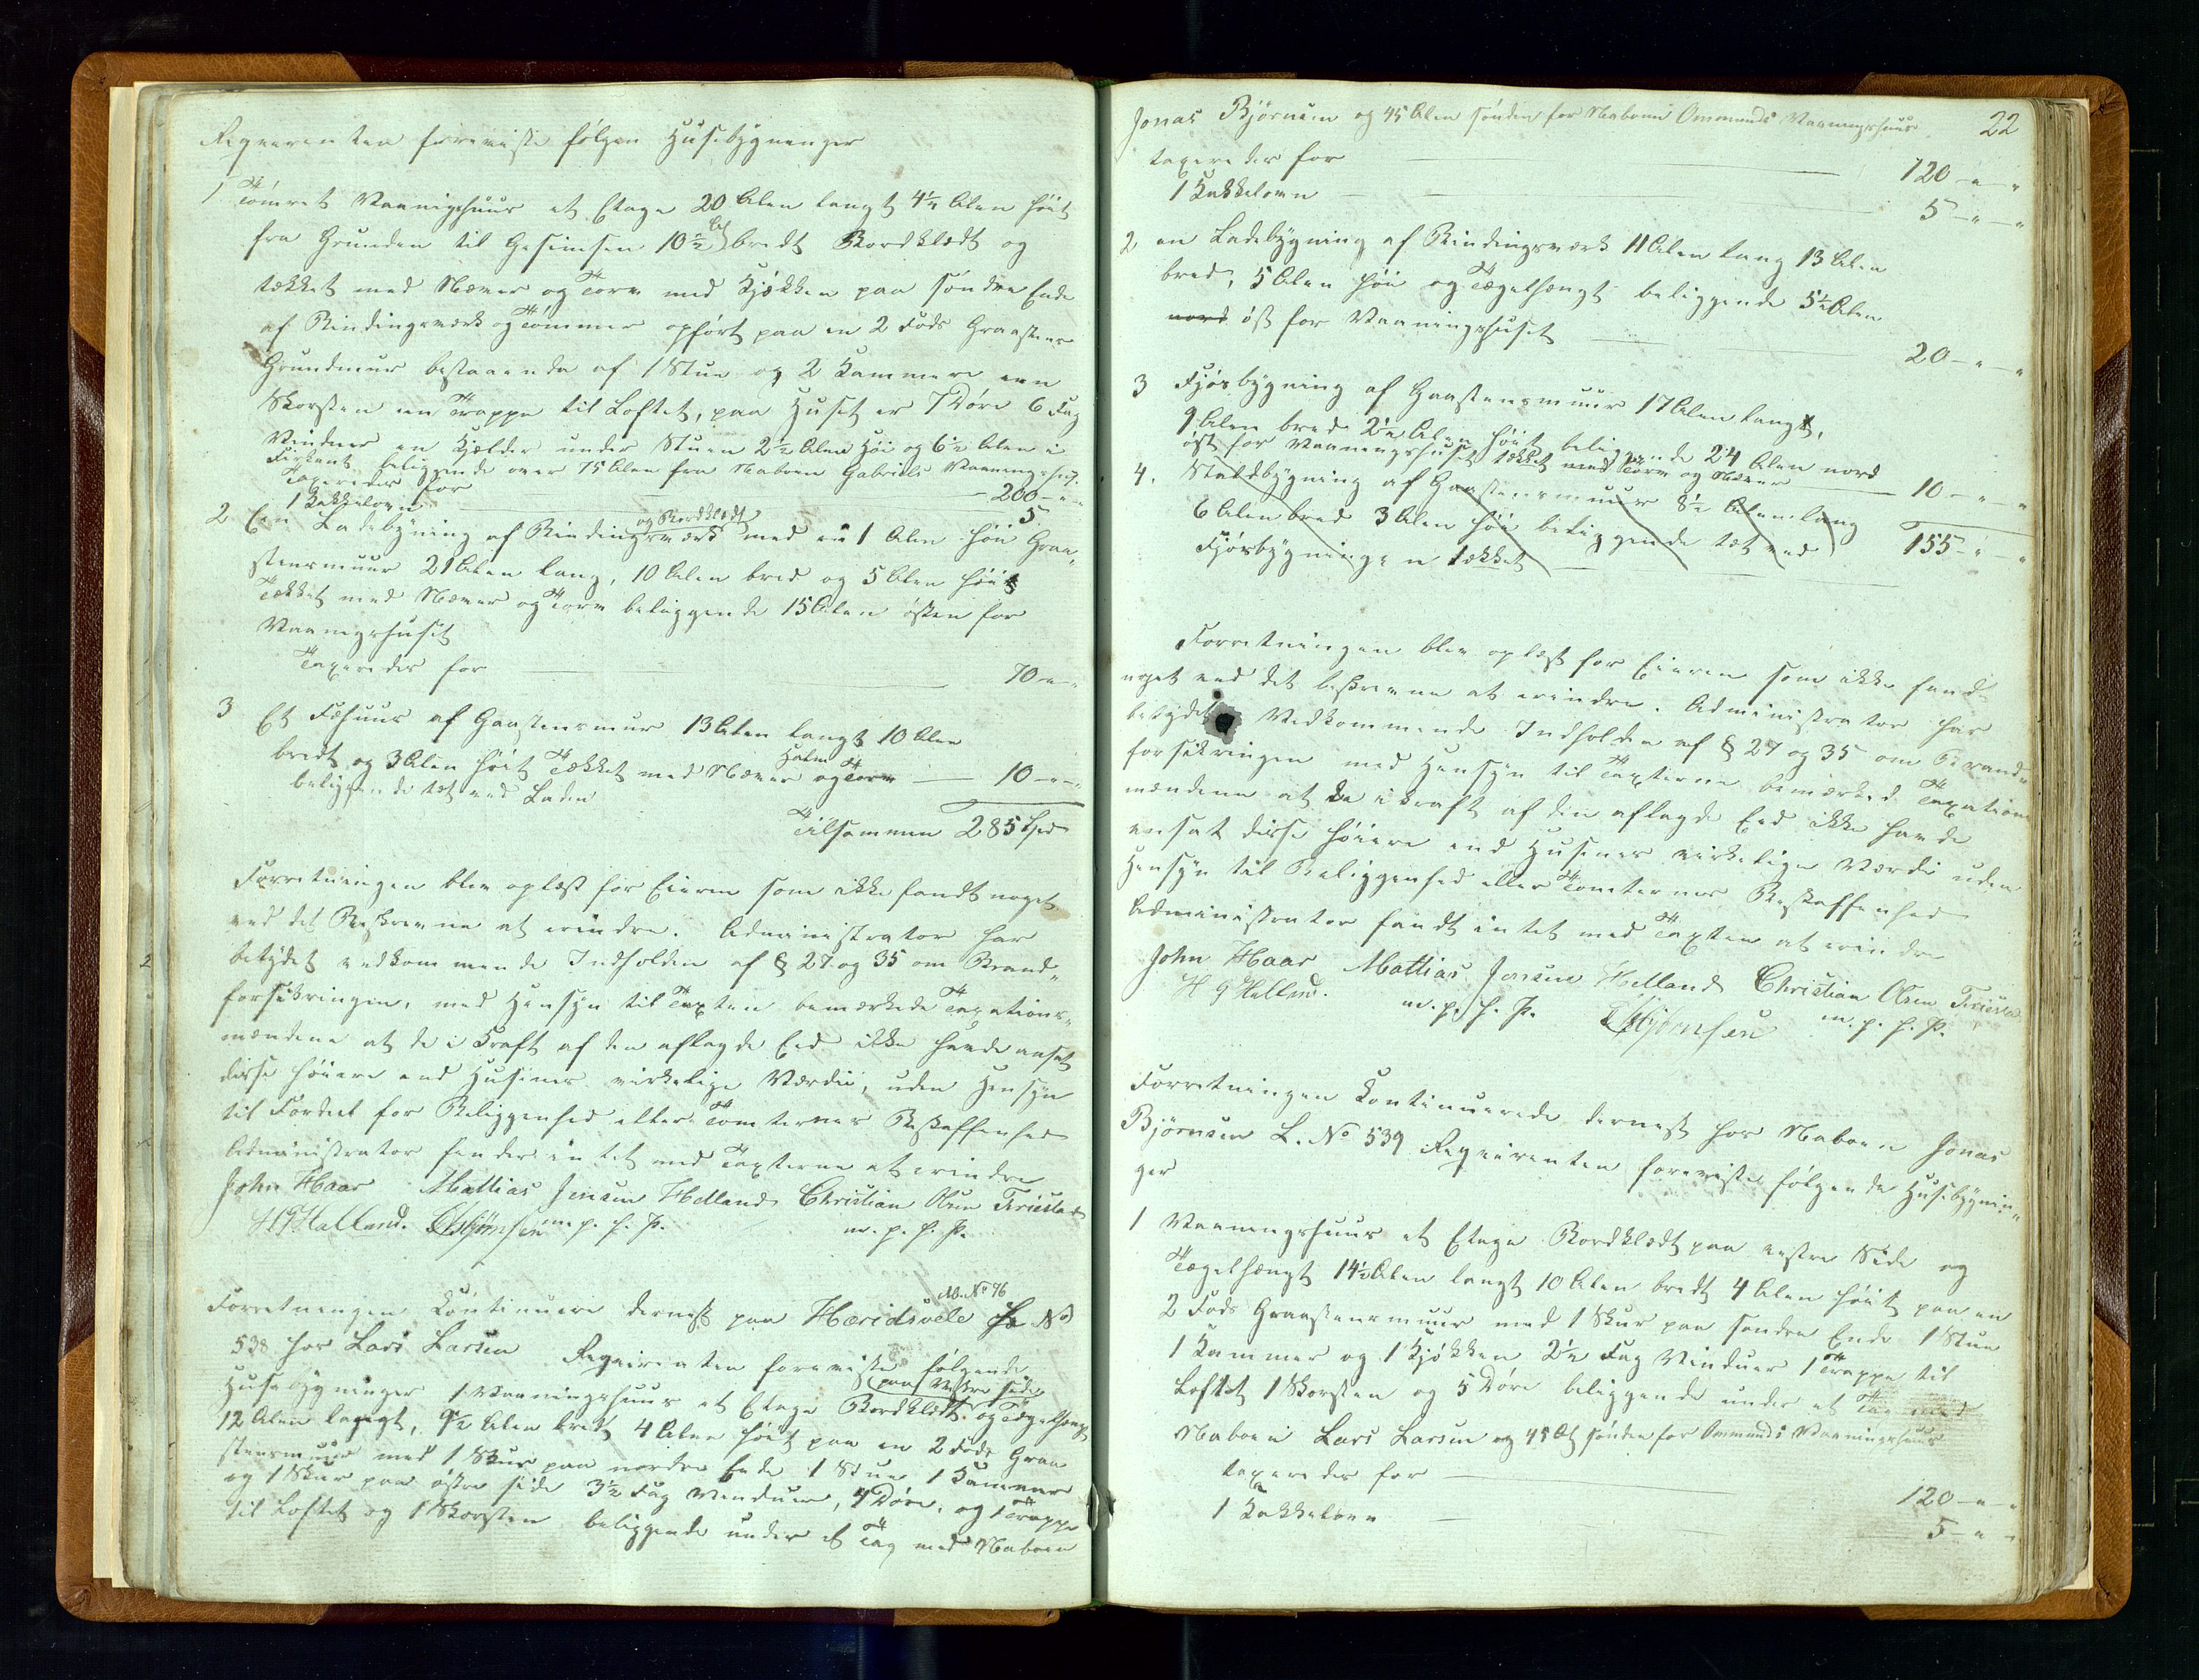 Reqvirenten foreviste følgen Husebygninger
1 Tømret Vaaningshuus et Etage 20 Alen langt 4½ Alen høit
fra Grunden til Gesimsen 10½ Al bredt Bordklædt og
tækket med Næver og Torv med Kjøkken paa søndre Ende
af Bindingsværk og Tømmer opført paa en 2 Fods Graasteens
Grundmuur bestaaende af 1 Stue og 2 Kammere en
Skorsten en Trappe til Loftet, paa Huset er 7 Døre 6 Fag
Vinduer en Kjelder under Stuen 2½ Alen Høi og 6½ Alen i
Firkant beliggende over 75 Alen fra Naboen Gabriels Vaaningshus.
Taxeredes for 200 - " - "
1 Kakkelovn 5
2 En Ladebygning af Bindingsværk og Bordklædt med en 1 Alen høi Graa„
steensmuur 21 Alen lang, 10 Alen bred og 5 Alen høi
Tækket med Næver og Torv beliggende 15 Alen østen for
Vaaningshuset
Taxeredes for 70 - " - "
3 Et Fæhuus af Graasteensmur 13 Alen langt 10 Alen
bredt og 3 Alen høit Tækket med Næver og Torv Halm 10 - " - "
beliggende tæt ved Laden
Tilsammen 285 Spd
Forretningen blev oplæst for Eieren som ikke fandt noget
ved det Beskrevne at erindre. Administrator har
betydet vedkommende Indholden af § 27 og 35 om Brand„
forsikringen, med Hensyn til Taxten bemærkede Taxations„
mændene at de i Kraft af den aflagde Eed ikke havde ansat
disse høiere end Husenes virkelige Værdie, uden Hensyn
til Fordeel for Beliggenhed eller Tomternes Beskaffenhed
Administrator fandt intet ved Taxterne at erindre
John Haar Mattias Jensen Helland Christian Olsen Friestad
H G Helland. m. p. f. P. m. p. f. P.
M. No 76
Forretningen Kontinuere dernest paa Hæridsvele L No
538 hos Lars Larsen Reqvirenten foreviste følgende
Husebygninger 1 Vaaningshuus et Etage Bordklædt paa Vestre Side og Tægelhængt
12 Alen langt, 9½ Alen bredt 4 Alen høit paa en 2 Fods Graa
steensmuur med 1 Skur paa nordre Ende 1 Stue 1 Kammer
og 1 Skur paa østre side 3½ Fag Vinduer, 4 Døre, og 1 Trappe
til Loftet og 1 Skorsten beliggende under et Tag med Naboen
22
Jonas Bjørnsen og 45 Alen sønden for Naboens Ommunds Vaaningshuus
taxeredes for 120 - " - "
1 Kakkelovn 5 - " - "
2 en Ladebygning af Bindingsværk 11 Alen lang 13 Alen
bred, 5 Alen høi og Tægelhængt beliggende 5½ Alen
nord øst for Vaaningshuset 20 - " - "
3 Fjøsbygning af Graasteensmuur 17 Alen lang,
9 Alen bred 2½ Alen høit beliggende 24 Alen nord
øst for Vaaningshuset tækket med Torv og Næver 10 - " - "
4. Staldbygning af Graasteensmuur 8½ Alen lang
6 Alen bred 3 Alen høi beliggende tæt ved 155 - " - "
Fjøsbygningen tækket
Forretningen blev oplæst for Eieren som ikke fandt
noget ved det beskrevne at erindre. Administrator har
betydet Vedkommende Indholden af § 27 og 35 om Brand„
forsikringen med Hensyn til Taxterne bemærked Taxations
mændene at de i Kraft af den aflagde Eed ikke havde
ansat disse høiere end Husenes virkelige Værdi uden
Hensyn til Beliggenhed eller Tomternes Beskaffenhed
Administrator fandt intet ved Taxten at erindre
John Haar Mattias Jensen Helland Christian Olsen Friestad
H G Helland. m. p. f. P. m. p. f. P.
Forretningen Kontinuerede dernest hos Naboen Jonas
Bjørnsen L. No 539 Reqvirenten foreviste følgende Husebygnin„
ger
1 Vaaningshuus et Etage Bordklædt paa vestre Side og
Tægelhængt 14½ Alen langt 10 Alen bredt 4 Alen høit paa en
2 Fods Graasteensmuur med 1 Skur paa søndre Ende 1 Stue
1 Kammer og 1 Kjøkken 2½ Fag Vinduer 1 Trappe til
Loftet 1 Skorsten og 5 Døre beliggende under et Tag med
Naboen Lars Larsen og 45 Al sønden for Ommunds Vaaningshuus
taxeredes for 120 - " - "
1 Kakkelovn 5 - " - "